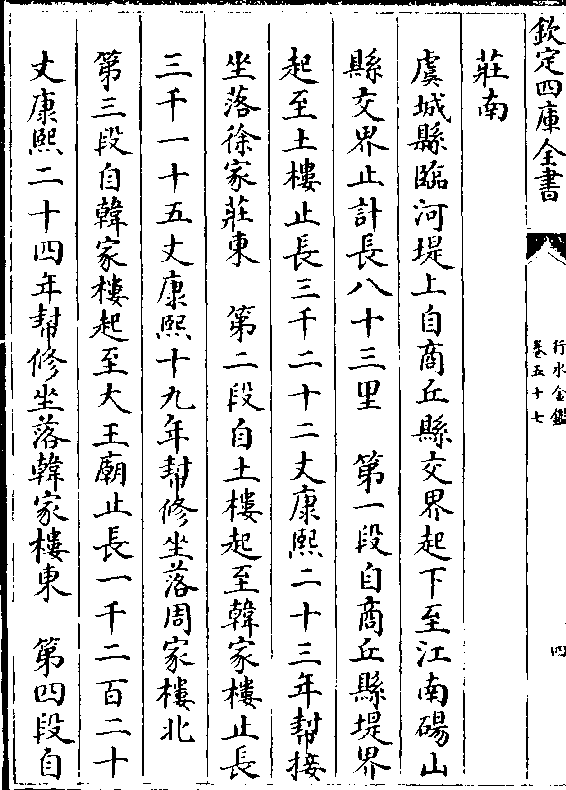 欽定四庫全書
行水金鑑
卷五十七
四
莊南
虞城縣臨河堤上自商丘縣交界起下至江南碭山
縣交界止計長八十三里　第一段自商丘縣堤界
起至土樓止長三千二十二丈康熙二十三年幫接
坐落徐家莊東　第二段自土樓起至韓家樓止長
三千一十五丈康熙十九年幫修坐落周家樓北
第三段自韓家樓起至大王廟止長一千二百二十
丈康熙二十四年幫修坐落韓家樓東　第四段自